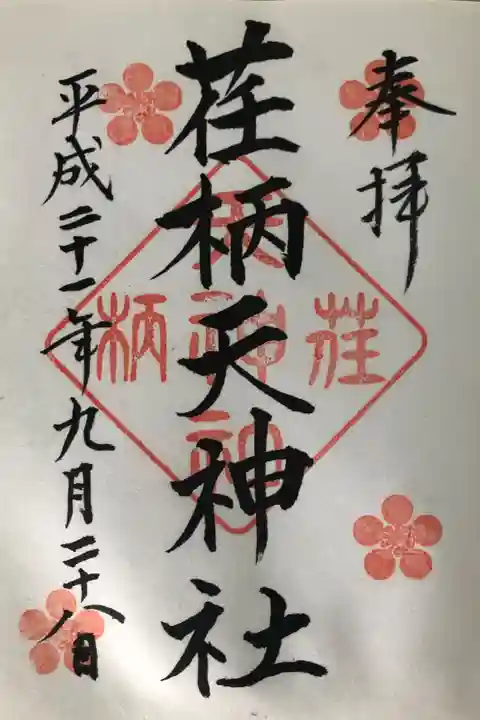 奉拝
荏柄天神社
平成二十一年九月二十八日
荏
柄
天
神
社